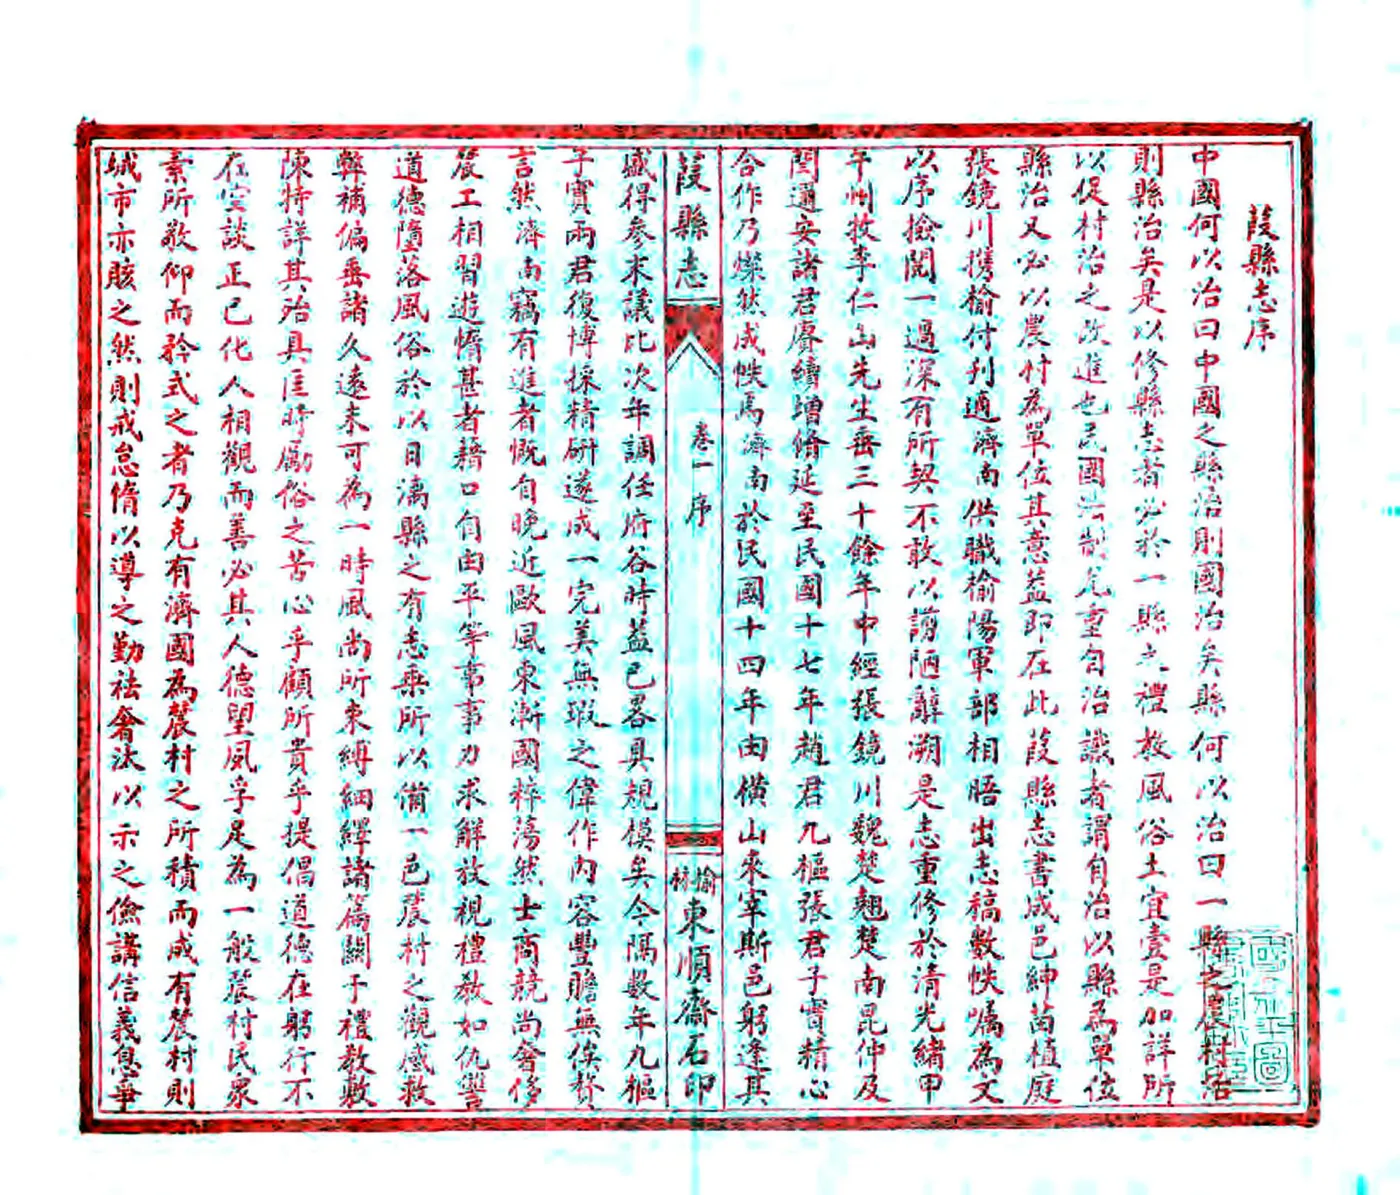 葭縣志序
中國何以治曰中國之縣治則國治矣縣何以治曰一縣之農村治
則縣治矣是以修縣志者必於一縣之禮教風俗土宜壹是加詳所
以促村治之改進也民國法制尤重自治識者謂自治以縣為單位
縣治又必以農村為單位其意益即在此葭縣志書成邑紳苗植庭
張鏡川携榆付刊適濟南供職榆陽軍部相晤出志稿數帙囑為文
以序撿閱一過深有所契不敢以謭陋辭溯是志重修於清光緒甲
午州牧李仁山先生垂三十餘年中經張鏡川魏楚翹楚南昆仲及
閻迺安諸君賡續增脩延至民國十七年趙君九樞張君子實精心
合作乃燦然成帙焉濟南於民國十四年由橫山來宰斯邑躬逢其
葭縣志
卷一 序
榆林東順齋石印
盛得參末議比次年調任府谷時葢已畧具規模矣今隔數年九樞
子實兩君復博採精研遂成一完美無瑕之偉作內容豐贍無俟贅
言然濟南竊有進者慨自晚近歐風東漸國粹蕩然士商競尚奢侈
農工相習遊惰甚者藉口自由平等事事力求解放視禮教如仇讐
道德墮落風俗於以日漓縣之有志乘所以備一邑農村之觀感救
弊補偏垂諸久遠未可為一時風尚所束縛細繹諸篇關于禮教敷
陳特詳其殆具匡時勵俗之苦心乎顧所貴乎提倡道德在躬行不
在空談正己化人相觀而善必其人德望風孚足為一般農村民眾
素所敬仰而矜式之者乃克有濟國為農村之所積而成有農村則
城市亦賅之然則戒怠惰以導之勤祛奢汰以示之儉講信義息爭